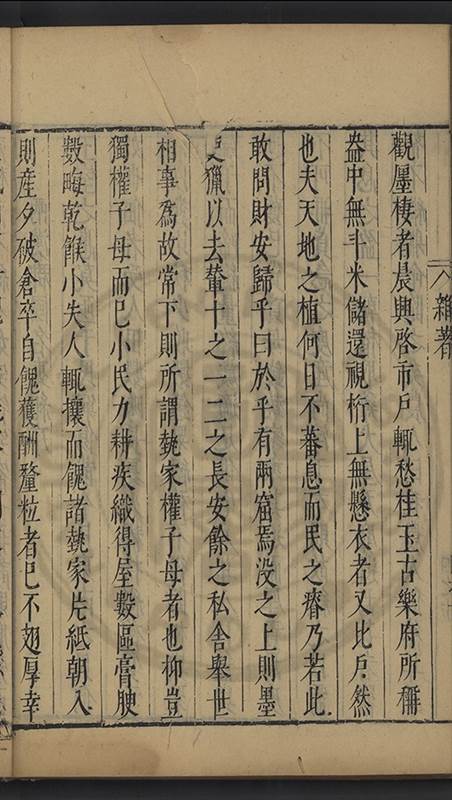 雜著
觀廛棲者晨興啓市戶輒愁桂玉古樂府所稱
盎中無斗米儲還視桁上無懸衣者又比戶然
也夫天地之植何日不蕃息而民之瘠乃若此
敢問財安歸乎曰於乎有兩窟焉没之上則墨
吏獵以去輦十之一二之長安餘之私舍舉世
相事為故常下則所謂埶家權子母者也柳豈
獨權子母而已小民力耕疾織得屋數區膏腴
數畮乾餱小失人輒攘而餽諸埶家片紙朝入
則産夕破倉卒自餽獲酬釐粒者已不翅厚幸